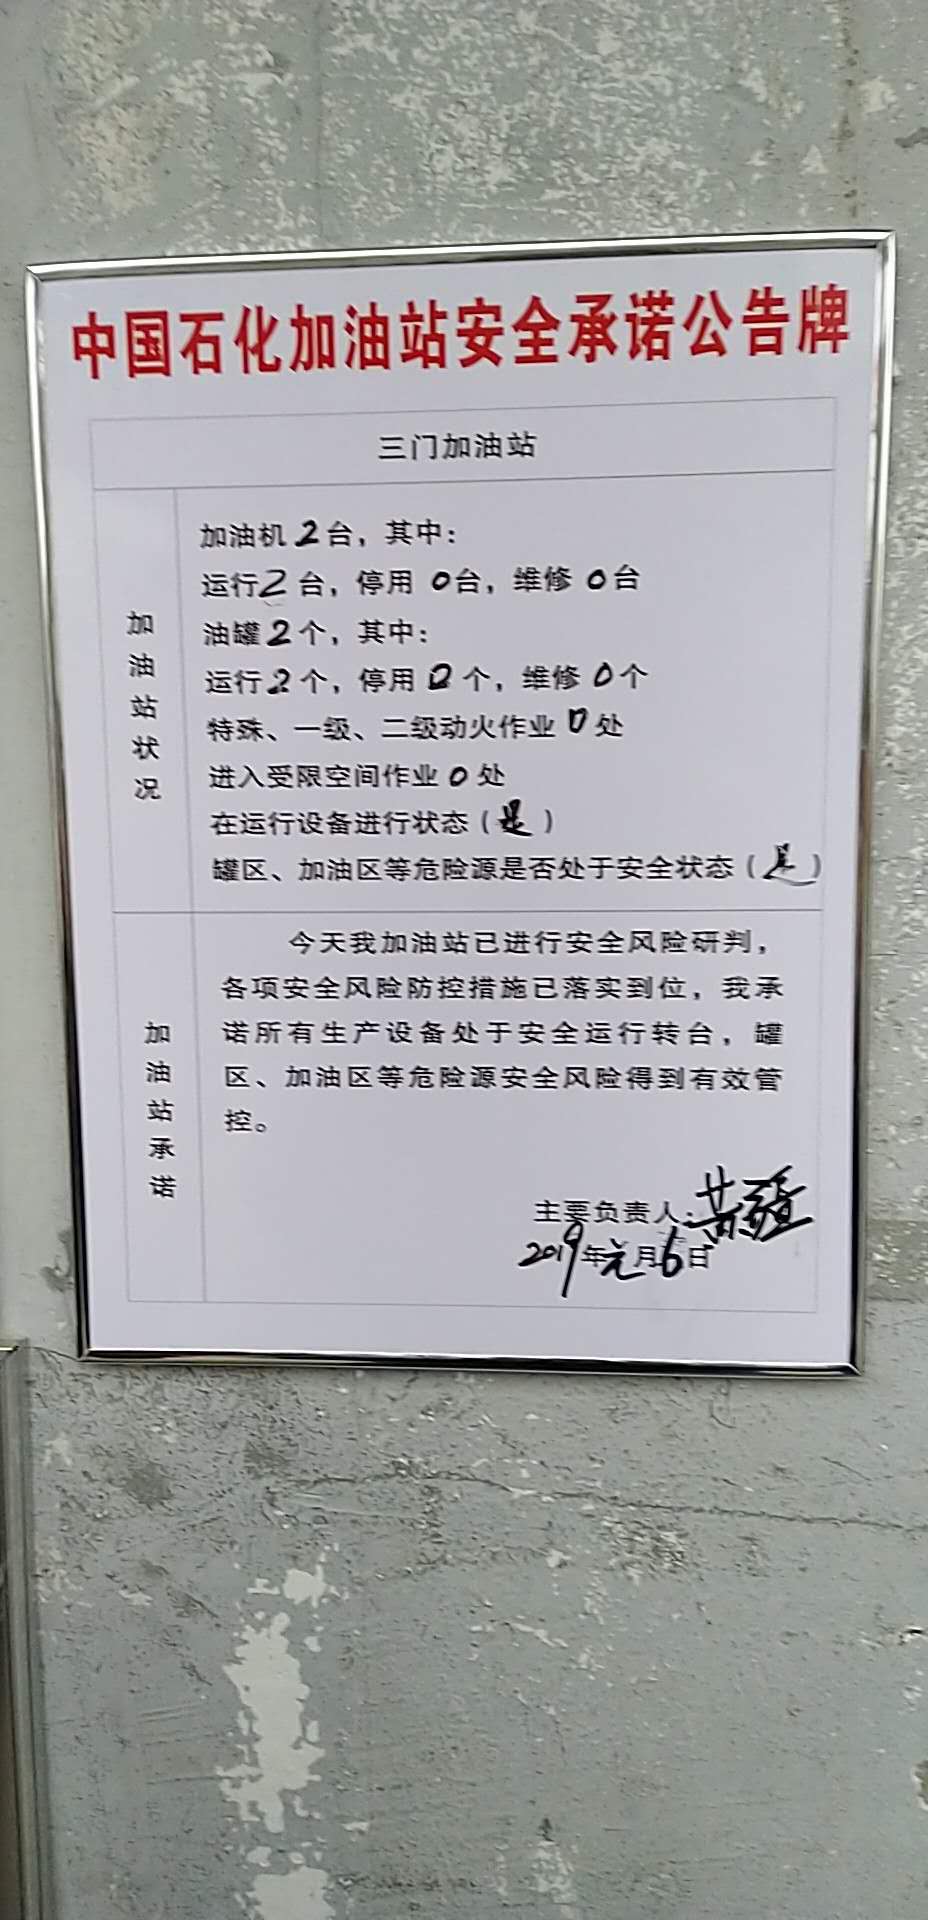 中国石化加油站安全承诺公告牌
三门加油站
加油站状况
加油机 2 台，其中：
运行 2 台，停用 0 台，维修 0 台
油罐 2 个，其中：
运行 2 个，停用 0 个，维修 0 个
特殊、一级、二级动火作业 0 处
进入受限空间作业 0 处
在运行设备进行状态（是）
罐区、加油区等危险源是否处于安全状态（是）
加油站承诺
今天我加油站已进行安全风险研判，
各项安全风险防控措施已落实到位，我承
诺所有生产设备处于安全运行转台，罐
区、加油区等危险源安全风险得到有效管
控。
主要负责人：黄
2019年元月6日